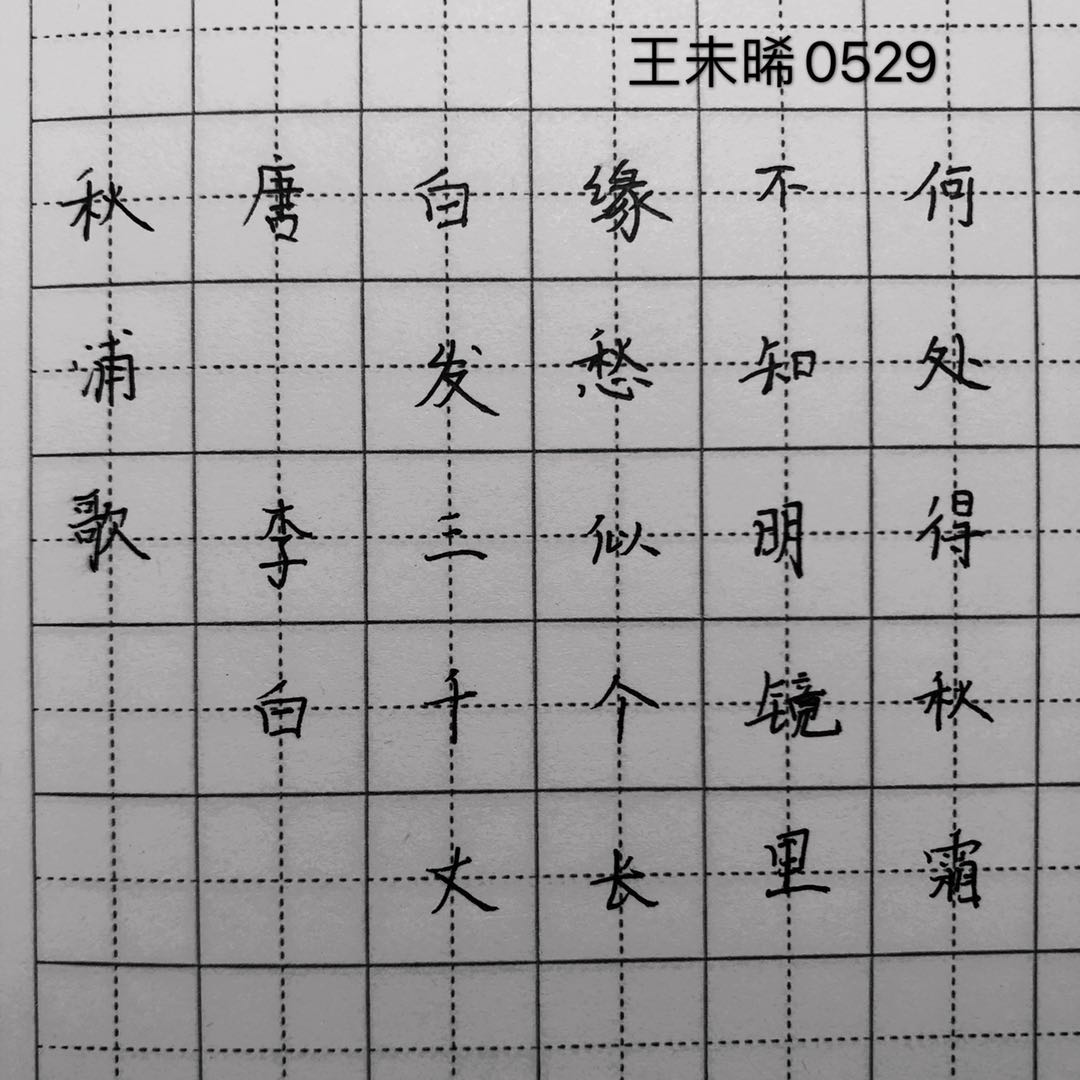 王未晞0529
秋浦歌
唐 李白
白发三千丈
缘愁似个长
不知明镜里
何处得秋霜